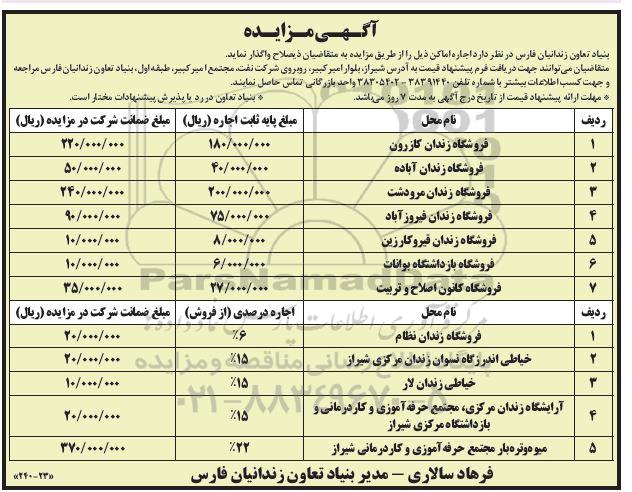 آگهـی مـزایـده
بنیاد تعاون زندانیان فارس در نظر دارد اجاره اماکن ذیل را از طریق مزایده به متقاضیان ذیصلاح واگذار نماید.
متقاضیان می‌توانند جهت دریافت فرم پیشنهاد قیمت به آدرس شیراز، بلوار امیرکبیر، روبروی شرکت نفت، مجتمع امیرکبیر، طبقه اول، بنیاد تعاون زندانیان فارس مراجعه
و جهت کسب اطلاعات بیشتر با شماره تلفن ۳۸۳۹۱۴۴۰ – ۳۸۳۰۵۴۰۲ واحد بازرگانی تماس حاصل نمایند.
* مهلت ارائه پیشنهاد قیمت از تاریخ درج آگهی به مدت ۷ روز می‌باشد. * بنیاد تعاون در رد یا پذیرش پیشنهادات مختار است.
ردیف نام محل مبلغ پایه ثابت اجاره (ریال) مبلغ ضمانت شرکت در مزایده (ریال)
۱ فروشگاه زندان کازرون ۱۸۰/۰۰۰/۰۰۰ ۲۲۰/۰۰۰/۰۰۰
۲ فروشگاه زندان آباده ۴۰/۰۰۰/۰۰۰ ۵۰/۰۰۰/۰۰۰
۳ فروشگاه زندان مرودشت ۲۰۰/۰۰۰/۰۰۰ ۲۴۰/۰۰۰/۰۰۰
۴ فروشگاه زندان فیروزآباد ۷۵/۰۰۰/۰۰۰ ۹۰/۰۰۰/۰۰۰
۵ فروشگاه زندان قیروکارزین ۸/۰۰۰/۰۰۰ ۱۰/۰۰۰/۰۰۰
۶ فروشگاه بازداشتگاه بوانات ۶/۰۰۰/۰۰۰ ۱۰/۰۰۰/۰۰۰
۷ فروشگاه کانون اصلاح و تربیت ۲۷/۰۰۰/۰۰۰ ۳۵/۰۰۰/۰۰۰
ردیف نام محل اجاره درصدی (از فروش) مبلغ ضمانت شرکت در مزایده (ریال)
۱ فروشگاه زندان نظام ۶٪ ۲۰/۰۰۰/۰۰۰
۲ خیاطی اندرزگاه نسوان زندان مرکزی شیراز ۱۵٪ ۲۰/۰۰۰/۰۰۰
۳ خیاطی زندان لار ۱۵٪ ۱۰/۰۰۰/۰۰۰
۴ آرایشگاه زندان مرکزی، مجتمع حرفه‌آموزی و کاردرمانی و
بازداشتگاه مرکزی شیراز ۱۵٪ ۲۰/۰۰۰/۰۰۰
۵ میوه‌وتره‌بار مجتمع حرفه‌آموزی و کاردرمانی شیراز ۲۲٪ ۳۷۰/۰۰۰/۰۰۰
فرهاد سالاری – مدیر بنیاد تعاون زندانیان فارس
«۲۴۰-۲۳»
ParsNamadData
۰۲۱-۸۸۳۴۹۶۷۰-۵